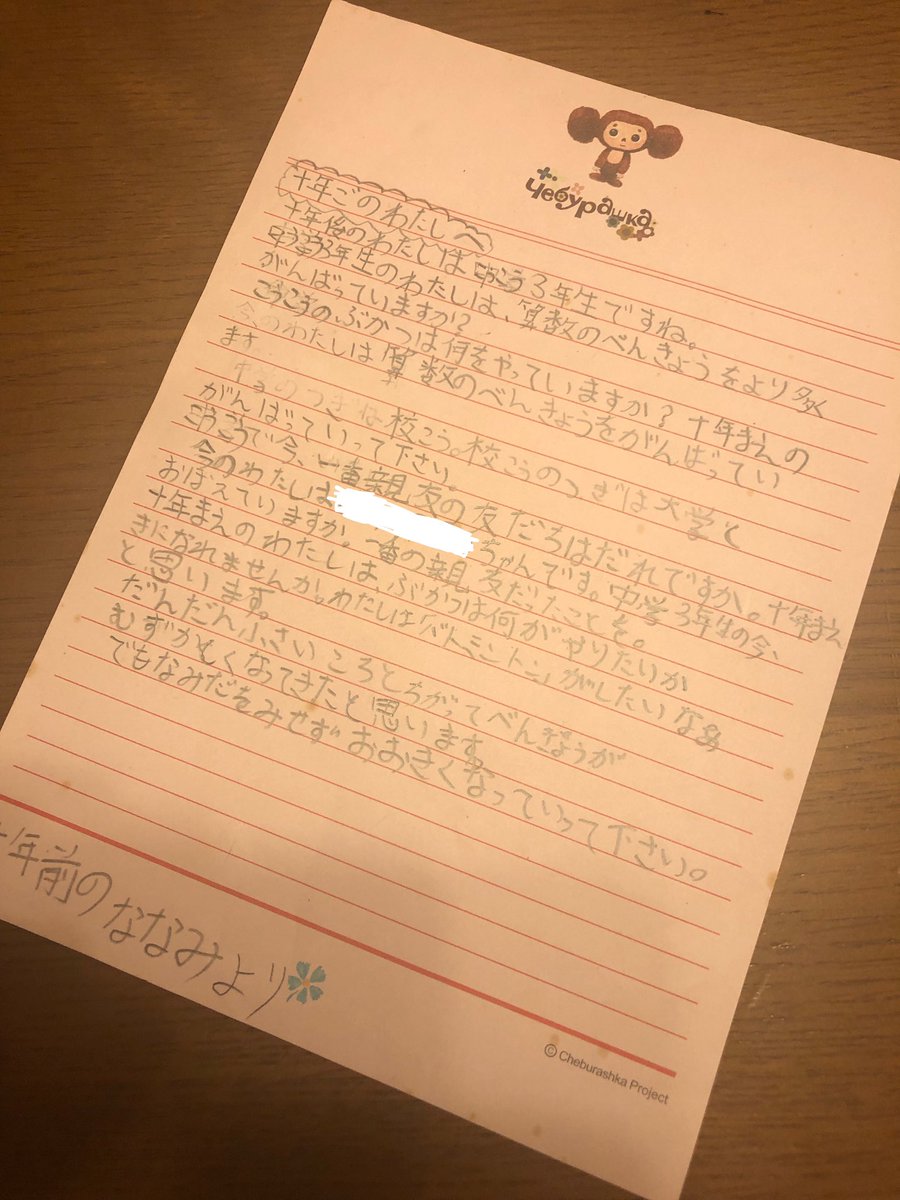 Чебурашка
十年ごのわたしへ
十年後のわたしは こうこう3年生ですね。
こうこう3年生のわたしは、算数のべんきょうをより多く
がんばっていますか?
こうこうのぶかつは何をやっていますか? 十年まえの
今のわたしは 算数のべんきょうをがんばってい
ます
のつぎは校こう。校こうのつぎは大学と
がんばっていって下さい。
こうこうで今、一番親友の友だちはだれですか。十年まえ
今のわたしは ちゃんです。中学3年生の今、
おぼえていますか。一番の親友だったことを。
十年まえのわたしは、ぶかつは何がやりたいか
きになれませんか。わたしは「バトミントン」がしたいなあ
と思います。
だんだん小さいころとちがってべんぎょうが
むずかしくなってきたと思います。
でもなみだをみせず おおきくなっていって下さい。
十年前のななみより
© Cheburashka Project